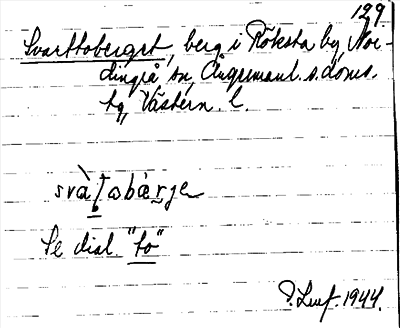 129
Svarttoberget, berg i Röksta by, Noi-
dingrå sn, Ångermanl. s. doms.
hg, Västern. l.
svàʈɷbærje
Se dial. "to"
P. Leuf. 1944.